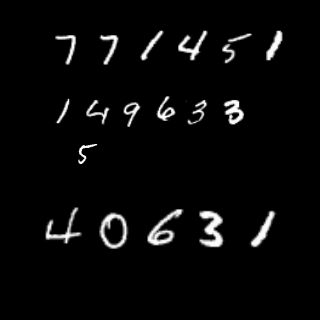 771451
149633
5
40631